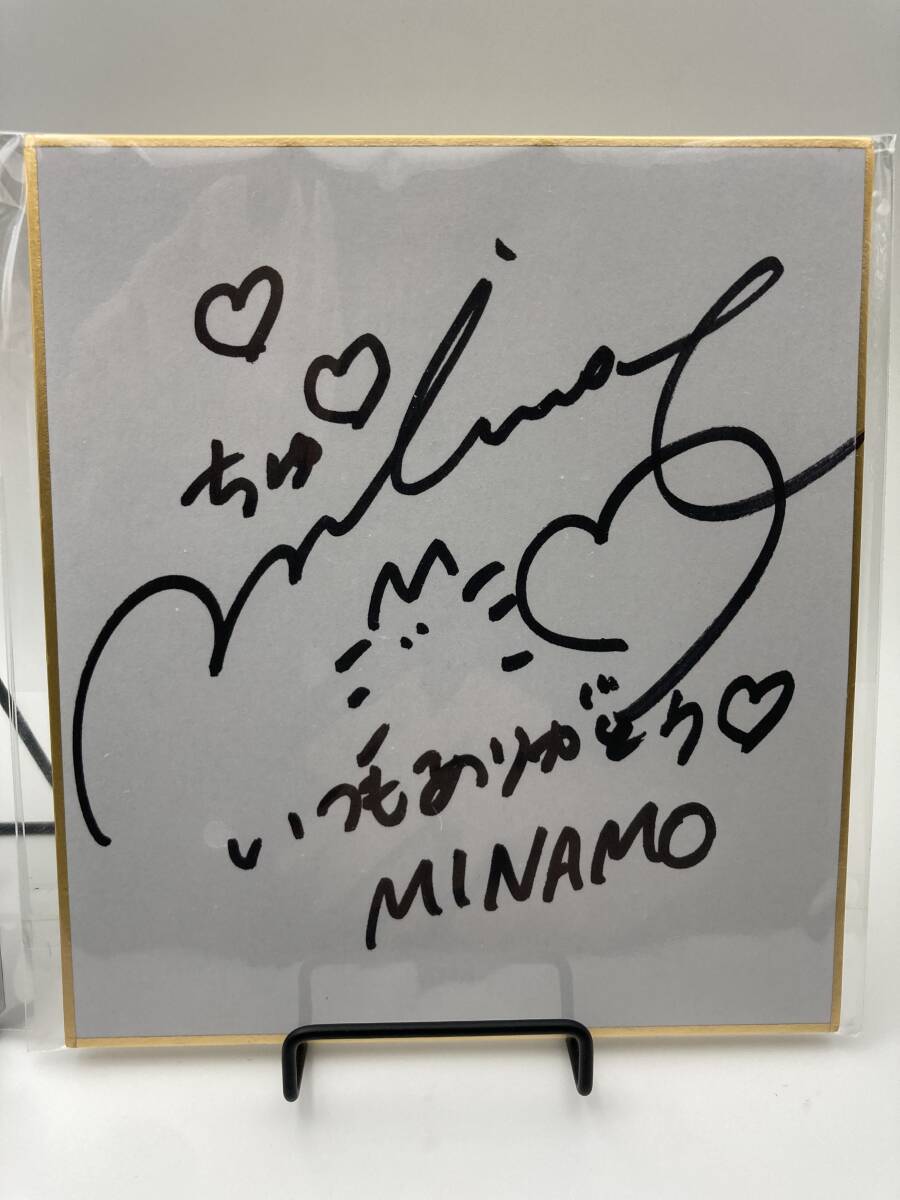 ちゅ♡
minamo
いつもありがとう♡
MINAMO